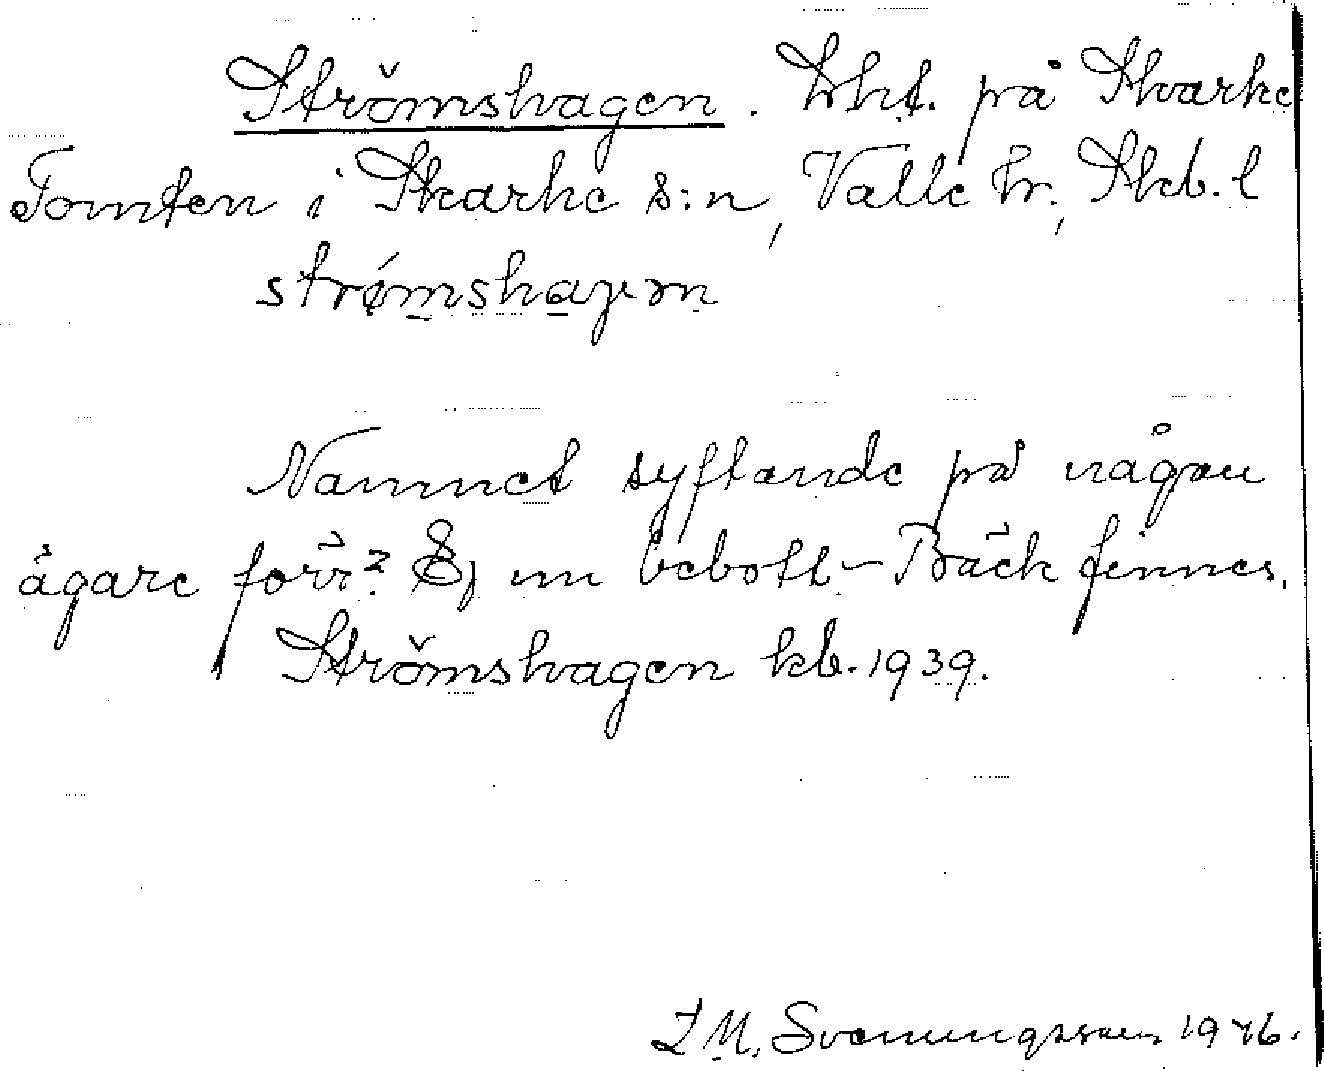 Strömshagen. Lht. på Skarke
Tomten i Skarke s:n, Valle hr., Skb. l
strømshagen
Namnet syftande på någon
ägare förr? Ej nu bebott – Bäck finnes.
Strömshagen kb. 1939.
L M. Svenungsson 1946.